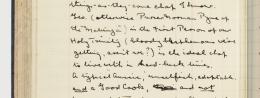 they — as they one chap I know.
Geo (otherwise Purser Roman Pyne of
the Malinga) is the First Person of our
Holy Trinity (bloody blasphemous we're
getting, ain't we?) is the ideal chap
to live with in hard-luck times.
A typical Aussie, unselfish, adaptable
and a Good Cook, and not